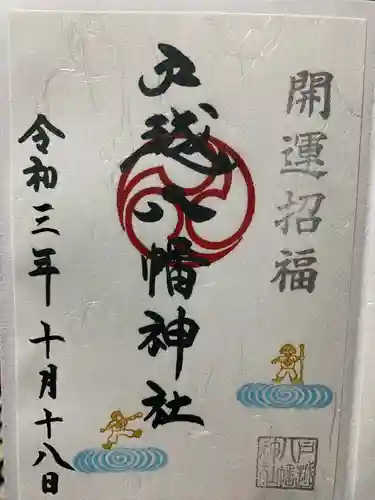 開運招福
戸越八幡神社
令和三年十月十八日
戸越八幡神社